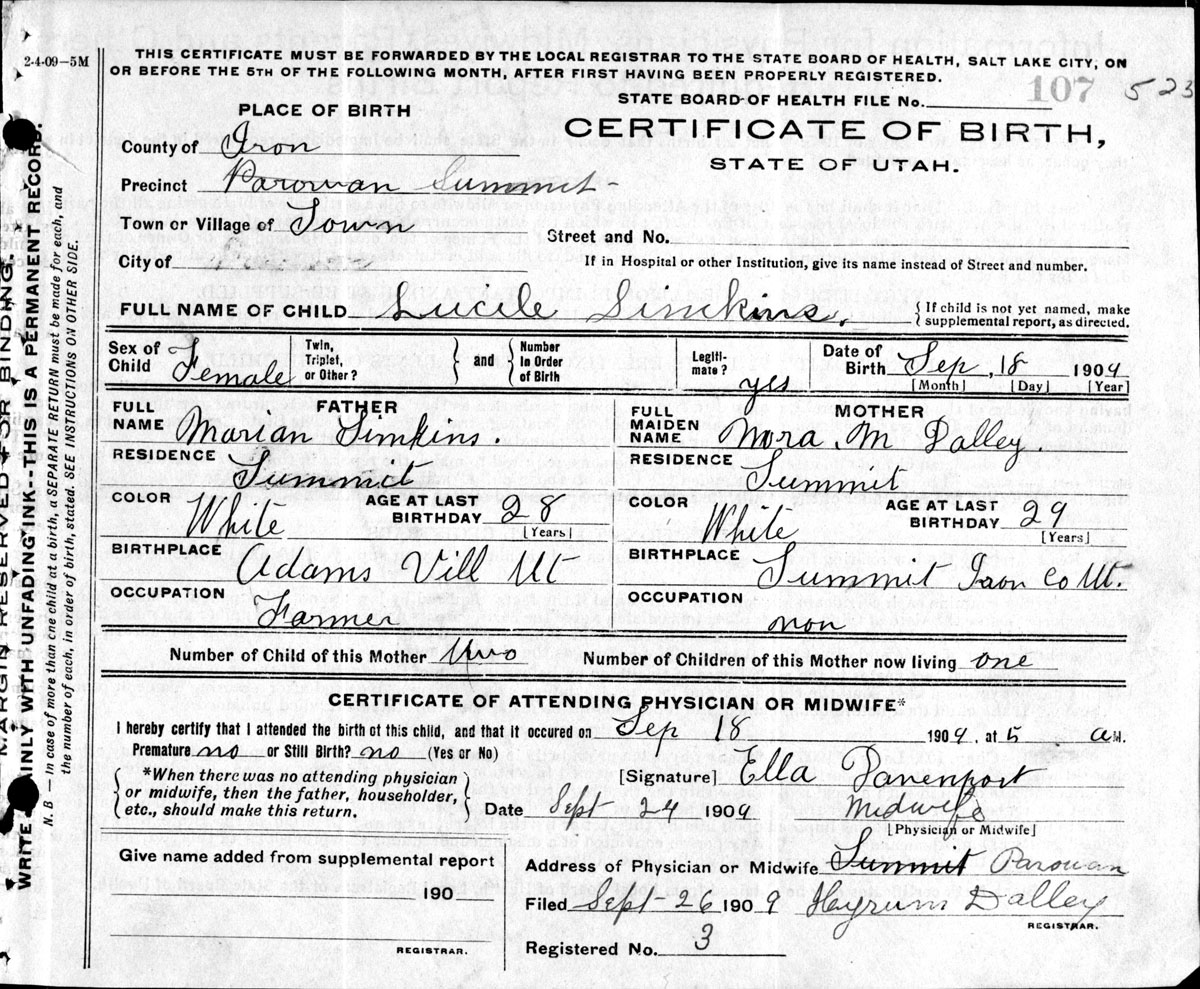 2-4-09-5M
THIS CERTIFICATE MUST BE FORWARDED BY THE LOCAL REGISTRAR TO THE STATE BOARD OF HEALTH, SALT LAKE CITY, ON
OR BEFORE THE 5TH OF THE FOLLOWING MONTH, AFTER FIRST HAVING BEEN PROPERLY REGISTERED.
STATE BOARD OF HEALTH FILE No. 107 523
PLACE OF BIRTH
CERTIFICATE OF BIRTH,
STATE OF UTAH.
County of Iron
Precinct Parowan Summit
Town or Village of Town
Street and No.
City of
If in Hospital or other Institution, give its name instead of Street and number.
FULL NAME OF CHILD Lucile Simkins. { If child is not yet named, make
supplemental report, as directed.
Sex of Child Female Twin, Triplet, or Other? } and { Number in Order of Birth Legiti-mate? yes Date of Birth Sep, 18 1909
[Month] [Day] [Year]
FATHER
FULL NAME Marian Simkins.
RESIDENCE
Summit
COLOR White AGE AT LAST BIRTHDAY 28
[Years]
BIRTHPLACE
Adams Vill Ut
OCCUPATION
Farmer
MOTHER
FULL MAIDEN NAME Nora M Dalley.
RESIDENCE
Summit
COLOR White AGE AT LAST BIRTHDAY 29
[Years]
BIRTHPLACE
Summit Iron Co Ut.
OCCUPATION
non
Number of Child of this Mother two Number of Children of this Mother now living one
CERTIFICATE OF ATTENDING PHYSICIAN OR MIDWIFE*
I hereby certify that I attended the birth of this child, and that it occured on Sep 18 1909, at 5 a M.
Premature no or Still Birth? no (Yes or No)
{ *When there was no attending physician
or midwife, then the father, householder,
etc., should make this return. }
[Signature] Ella Davenport
Date Sept 24 1909 Midwife
[Physician or Midwife]
Give name added from supplemental report
190
REGISTRAR.
Address of Physician or Midwife Summit Parowan
Filed Sept-26 1909 Hyrum Dalley
REGISTRAR.
Registered No. 3
MARGIN RESERVED FOR BINDING.
WRITE PLAINLY WITH UNFADING INK--THIS IS A PERMANENT RECORD.
N. B.—In case of more than one child at a birth, a SEPARATE RETURN must be made for each, and
the number of each, in order of birth, stated. SEE INSTRUCTIONS ON OTHER SIDE.